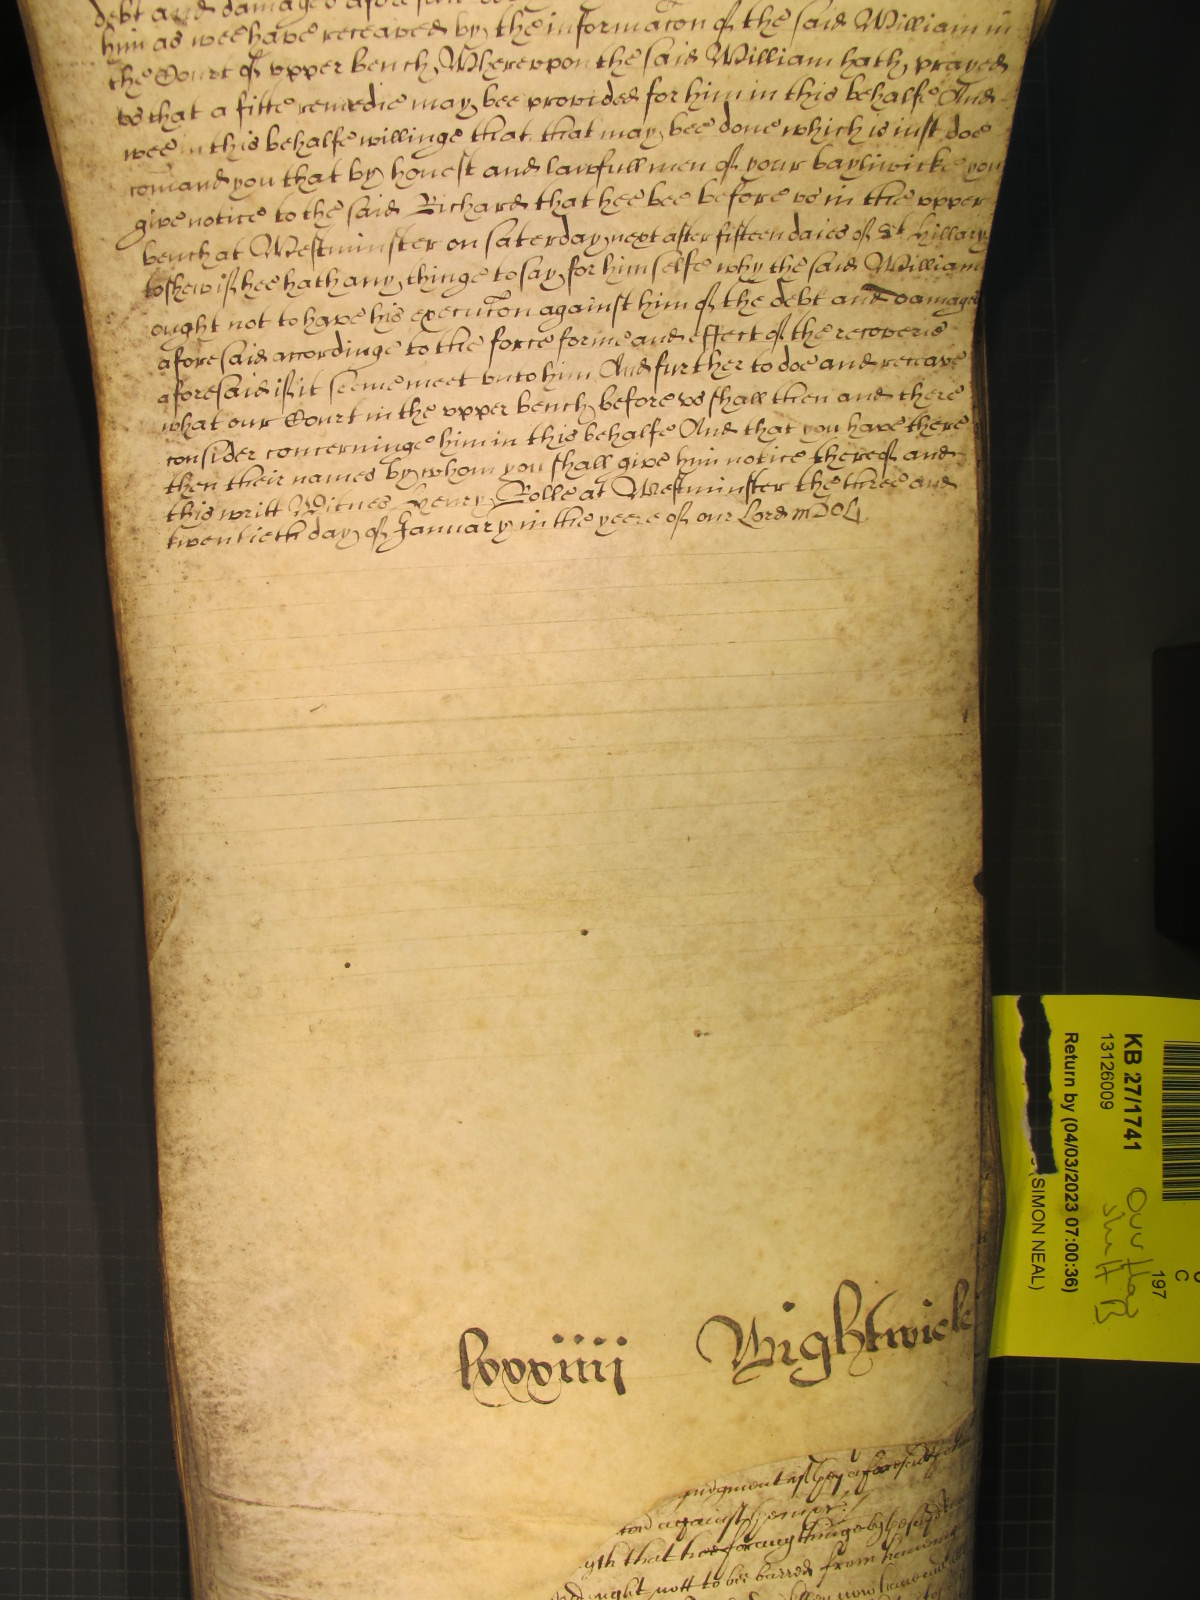 debt and damages afore
him as wee have receaved by the informacon of the said William in
the Court of upper bench, Whereupon the said William hath prayed
vs that a fitte remedie may bee provided for him in this behalfe And
wee in this behalfe willinge that that may bee done which is iust doe
comand you that by honest and lawfull men of your bayliwicke you
give notice to the said Richard that hee bee before vs in the vpper
bench at Westminster on saterday next after fifteen daies of St Hillary
to shew if hee hath any thinge to say for himselfe why the said William
ought not to have his execucon against him of the debt and damages
aforesaid accordinge to the force forme and effect of the recoverie
aforesaid if it seeme meet vnto him And further to doe and receave
what our Court in the vpper bench before vs shall then and there
consider concerninge him in this behalfe And that you have there
then their names by whom you shall give him notice thereof and
this writt Witnes Henry Rolle at Westminster the three and
twentieth day of January in the yeere of our Lord
lxxxiiii Wightwick
judgment if hey aforesaid
against
yth that hee for any thinge by
ought nott to bee barred from haveinge
KB 27/1741
13126009
Return by (04/03/2023 07:00:36)
(SIMON NEAL)
197
C